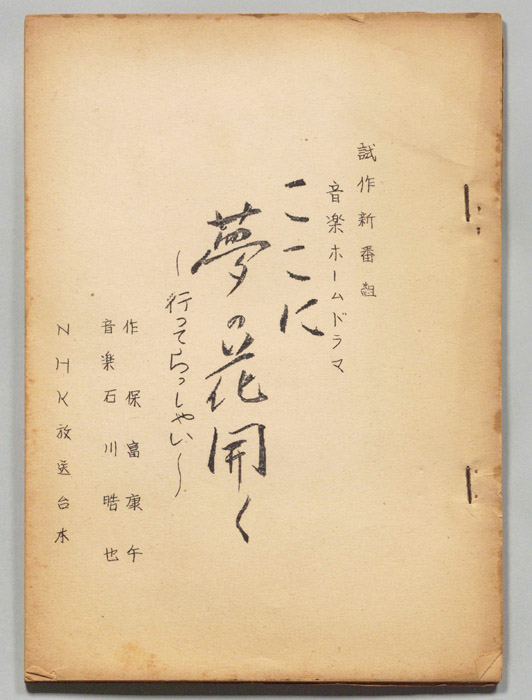 試作新番組
音楽ホームドラマ
ここに
夢の花開く
～行ってらっしゃい～
作 保富康午
音楽 石川皓也
NHK放送台本